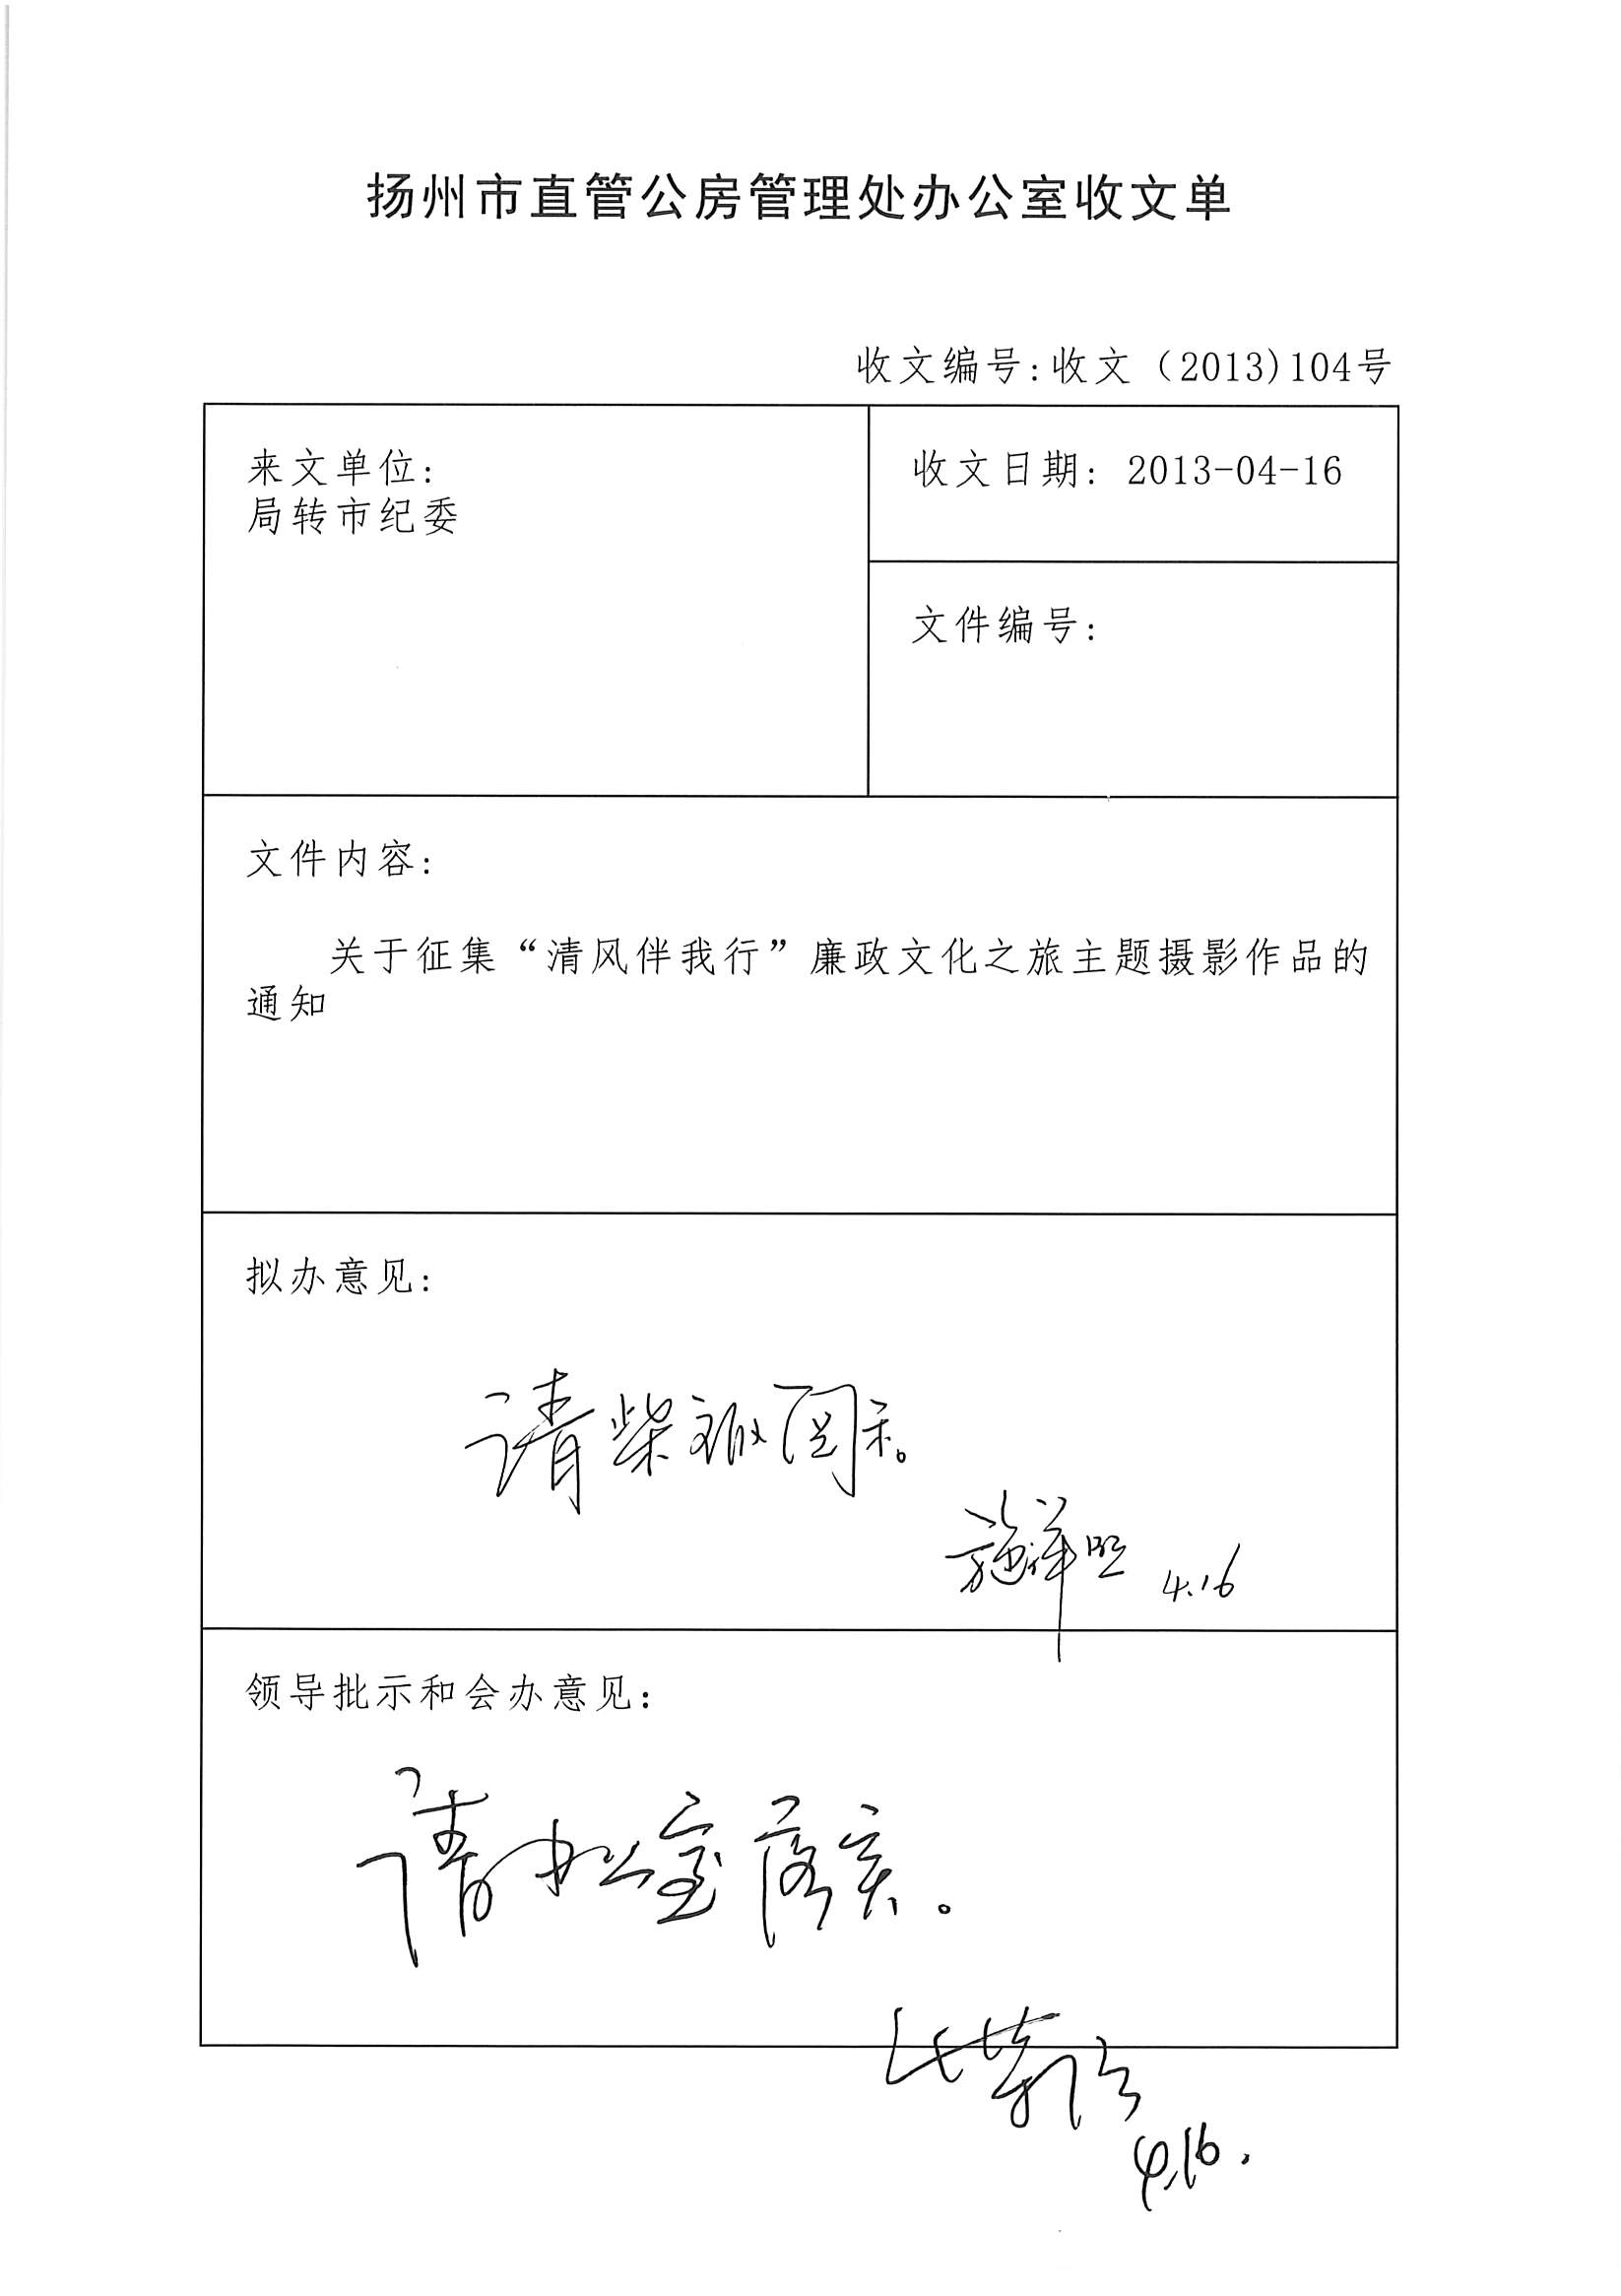 扬州市直管公房管理处办公室收文单
收文编号:收文（2013)104号
来文单位:
局转市纪委
收文日期: 2013-04-16
文件编号:
文件内容:
关于征集“清风伴我行”廉政文化之旅主题摄影作品的
通知
拟办意见:
请柴主任阅示。
施祥 4.16
领导批示和会办意见:
请办公室落实。
4.16.